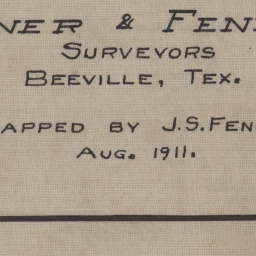 NER & FEN
SURVEYORS
BEEVILLE, TEX.
APPED BY J.S. FEN
AUG. 1911.